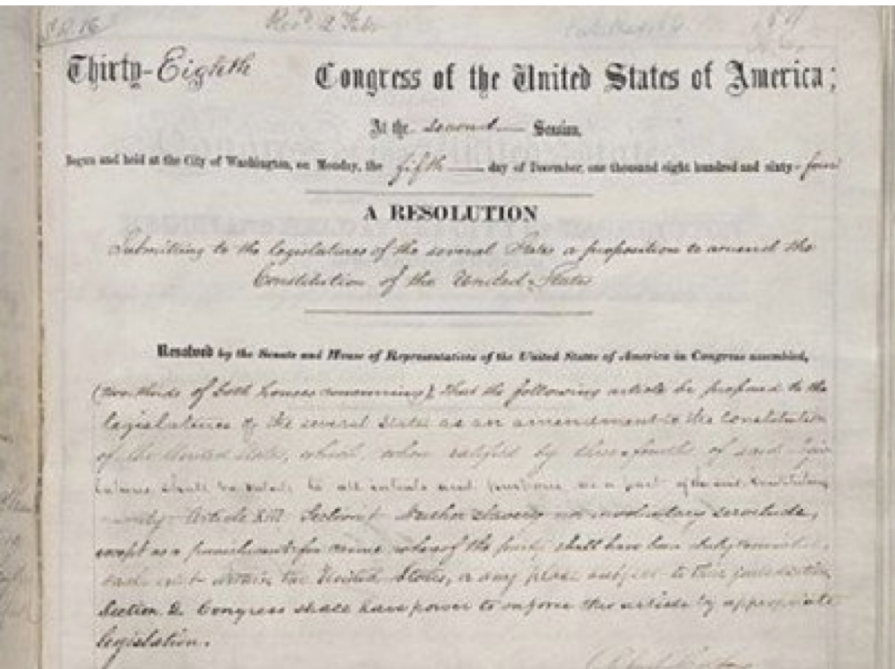 Thirty-Eighth Congress of the United States of America;
At the second Session,
Begun and held at the City of Washington, on Monday, the fifth day of December, one thousand eight hundred and sixty-four
A RESOLUTION
Submitting to the legislatures of the several States a proposition to amend the
Constitution of the United States
Resolved by the Senate and House of Representatives of the United States of America in Congress assembled,
(two thirds of both houses concurring), that the following article be proposed to the
legislatures of the several States as an amendment to the Constitution
of the United States, which, when ratified by three-fourths of said
shall be valid, to all intents and purposes, as a part of the said Constitution,
namely: Article XIII. Section 1. Neither slavery nor involuntary servitude,
except as a punishment for crime whereof the party shall have been duly convicted,
shall exist within the United States, or any place subject to their jurisdiction.
Section 2. Congress shall have power to enforce this article by appropriate
legislation.